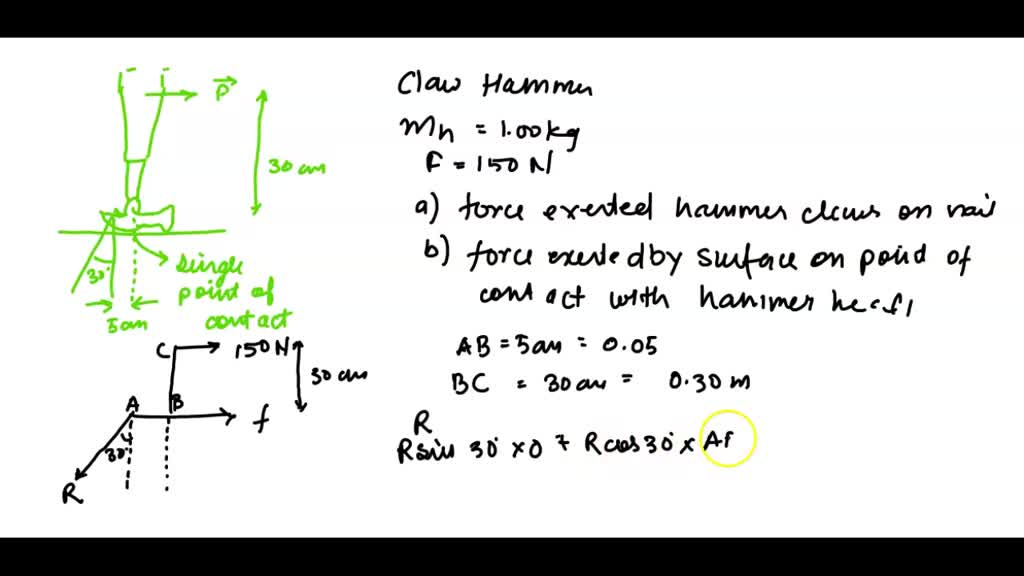 P
30 cm
30°
single
point of
contact
5cm
C
150 N
30 cm
A
B
f
30°
R
Claw Hammer
Mh = 1.00kg
F = 150 N
a) force exerted hammer claws on nail
b) force exerted by surface on point of
contact with hammer head
AB = 5cm = 0.05
BC = 30cm = 0.30 m
R
Rsin 30° × 0 + R cos 30° ×